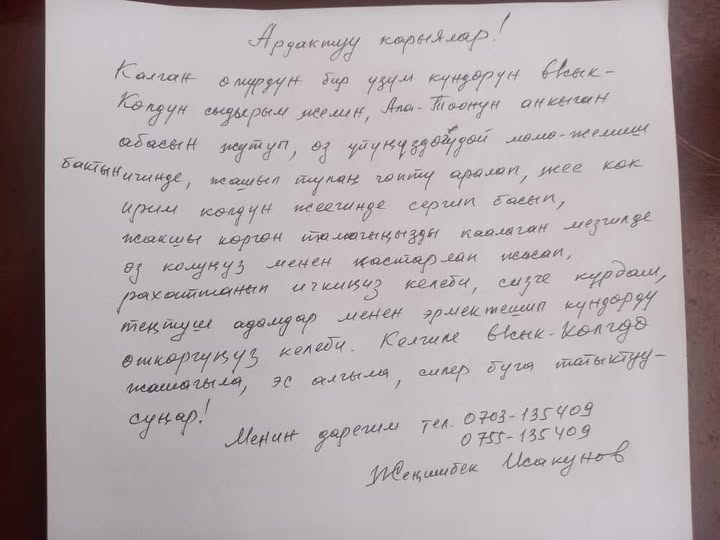 Ардактуу карыялар!
Калган өмүрдүн бир үзүм күндөрүн Ысык-
Көлдүн сыдырым желин, Ала-Тоонун аңкыган
абасын жутуп, өз үйүңүздөгүдөй мөмө-жемиш
бактын ичинде, жашыл тулаң чөптү аралап, жее көк
ирим көлдүн жээгинде сергип басып,
жакшы көргөн тамагыңызды каалаган мезгилде
өз колуңуз менен қастарлап жасап,
рахаттанып ичкиңиз келеби, сизге курдаш,
теңтуш адамдар менен эрмектешип күндөрдү
өткөргүңүз келеби. Келгиле Ысык-Көлгө
жашагыла, эс алгыла, силер буга татыктуу-
суңар!
Менин дарегим тел. 0703-135409
0755-135409
Жеңишбек Исакунов